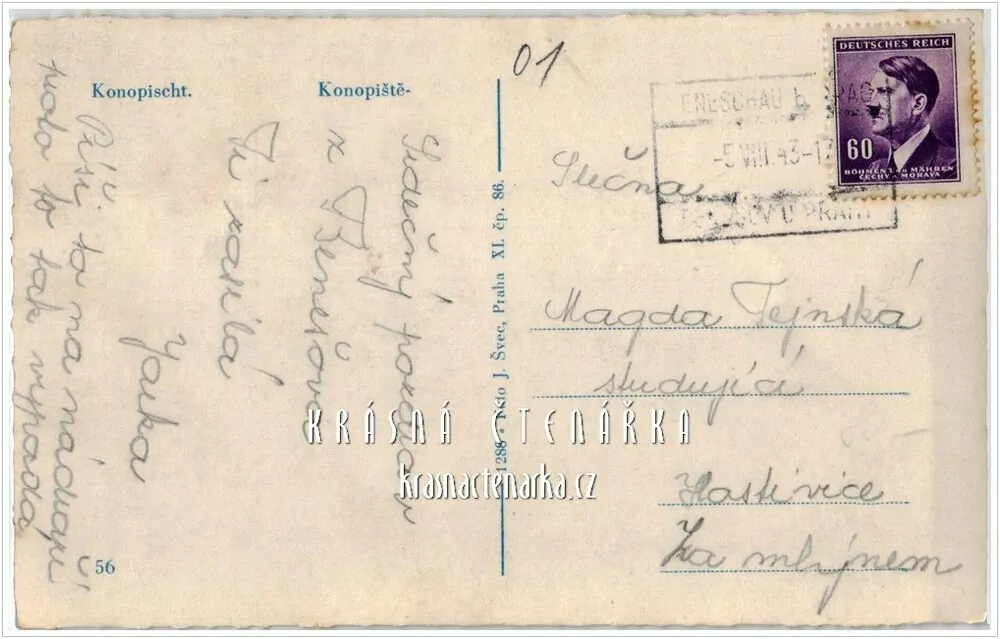 Konopischt.
Konopiště-
Srdečný pozdrav
z Benešova
Ti zasílá
Jarka
Píši to na nádraží
proto to tak vypadá
56
1288 - Foto J. Švec, Praha XI. čp. 86.
01
BENESCHAU B. PRAG
-5.VIII.43-17
BENEŠOV U PRAHY
DEUTSCHES REICH
60
BÖHMEN UND MÄHREN
ČECHY A MORAVA
Slečna
Magda Tejnská
studující
Hostivice
Za mlýnem
KRÁSNÁ ČTENÁŘKA
krasnactenarka.cz